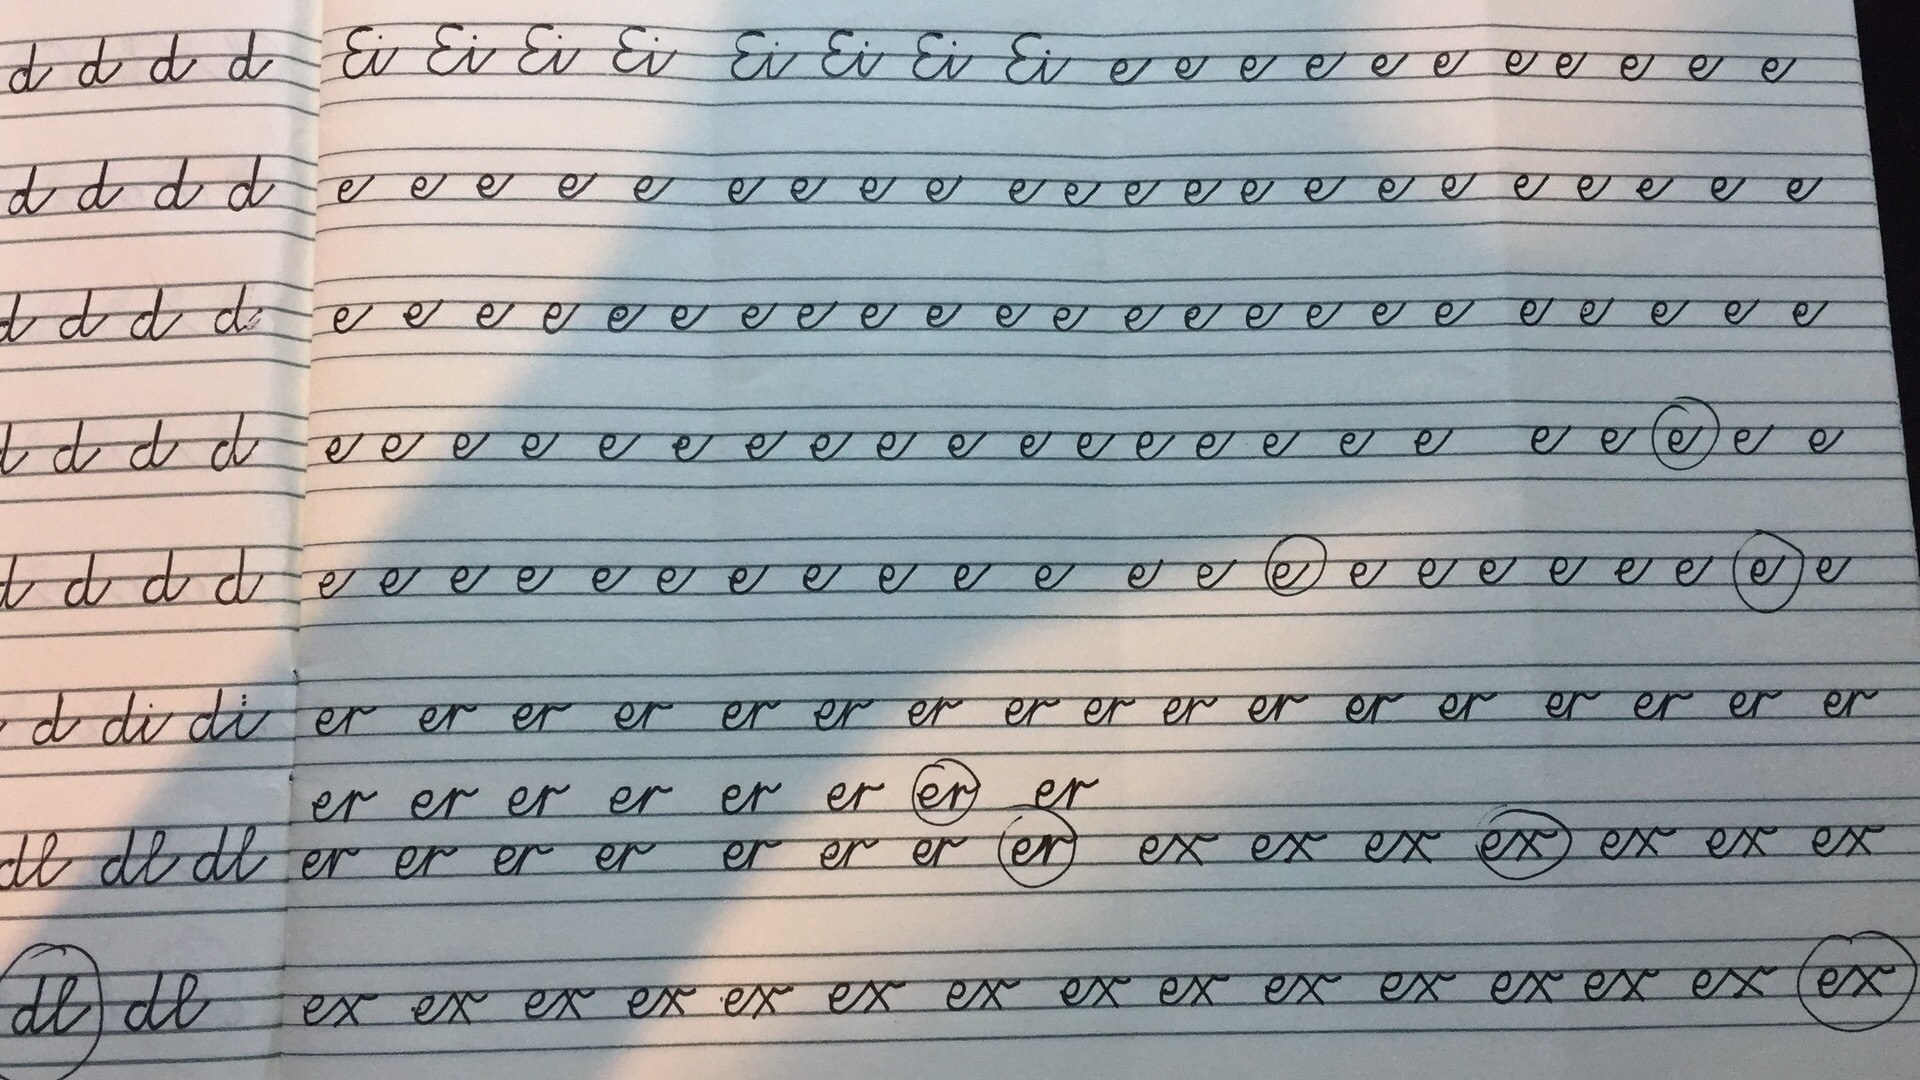 d d d d
d d d d
d d d d
d d d d
d d d d
d di di
dl dl dl
dl dl
Ei Ei Ei Ei Ei Ei Ei Ei e e e e e e e e e e e
e e e e e e e e e e e e e e e e e e e e e e
e e e e e e e e e e e e e e e e e e e e e e e
e e e e e e e e e e e e e e e e e e e e e e
e e e e e e e e e e e e e e e e e e e e e e
er er er er er er er er er er er er er er er er er
er er er er er er er er
er er er er er er er er ex ex ex ex ex ex ex
ex ex ex ex ex ex ex ex ex ex ex ex ex ex ex